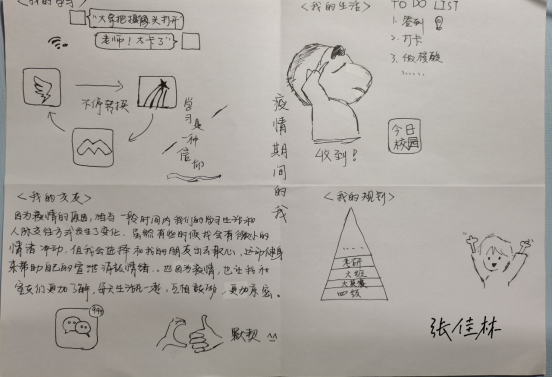 <我的学习>
"大家把摄像头打开"
"老师！太卡了"
不停转换
学习是一种信仰
疫情期间的我
<我的生活>
TO DO LIST
1. 签到
2. 打卡
3. 做核酸
......
收到!
今日校园
<我的交友>
因为疫情的原因,随着一段时间内我们的学习生活和
人际交往方式发生了变化。虽然有些时候我会有很小的
情绪冲动,但我会选择和我的朋友出去散心,运动健身
来帮助自己的
情绪..也因为疫情,也让我和
室友们更加了解,每天生活在一起,互相鼓励,更加亲密。
99+
默契 ^^
<我的规划>
......
考研
四级
张佳林